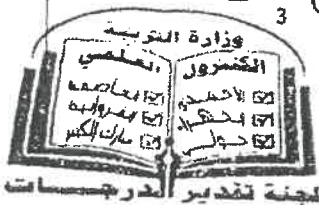 3
وزارة التربية
الكنترول العلمي
☑ الأحمدي ☑ العاصمة
☑ الجهراء ☑ الفروانية
☑ حولي ☑ مبارك الكبير
لجنة تقدير الدرجات